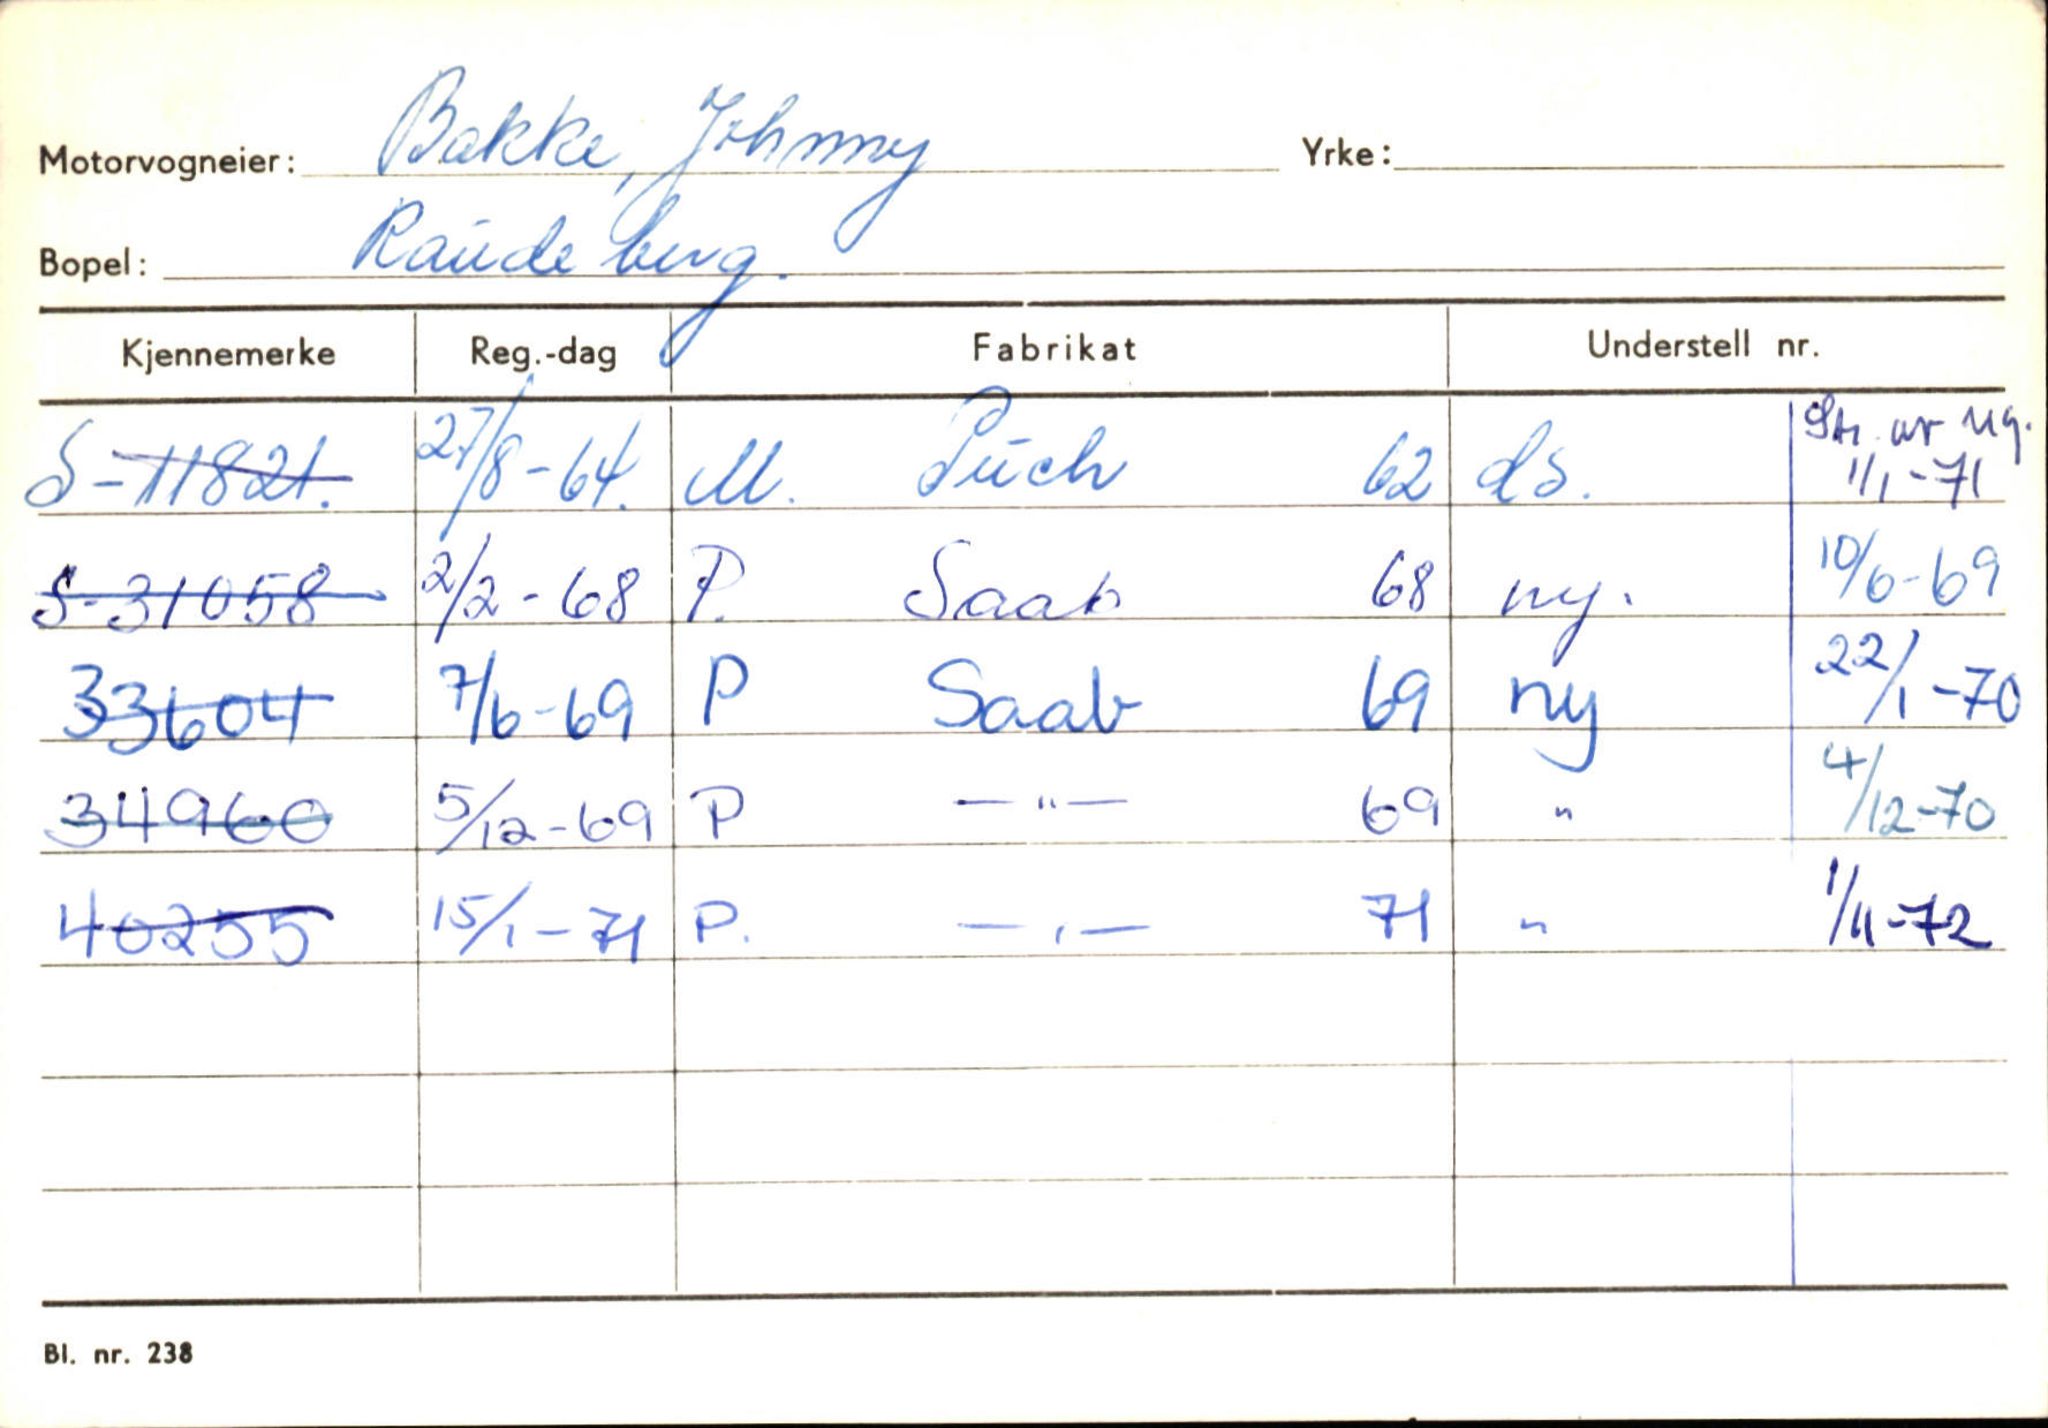 Motorvogneier: Bakke, Johnny Yrke:
Bopel: Raudeberg.
Kjennemerke Reg.-dag Fabrikat Understell nr.
S-11821. 27/8-64. M. Puch 62 ds. Str. av reg. 1/1-71
S-31058 2/2-68 P. Saab 68 ny. 10/6-69
33604 7/6-69 P Saab 69 ny 22/1-70
34960 5/12-69 P —"— 69 " 4/12-70
40255 15/1-71 P. —,— 71 " 1/11-72
Bl. nr. 238